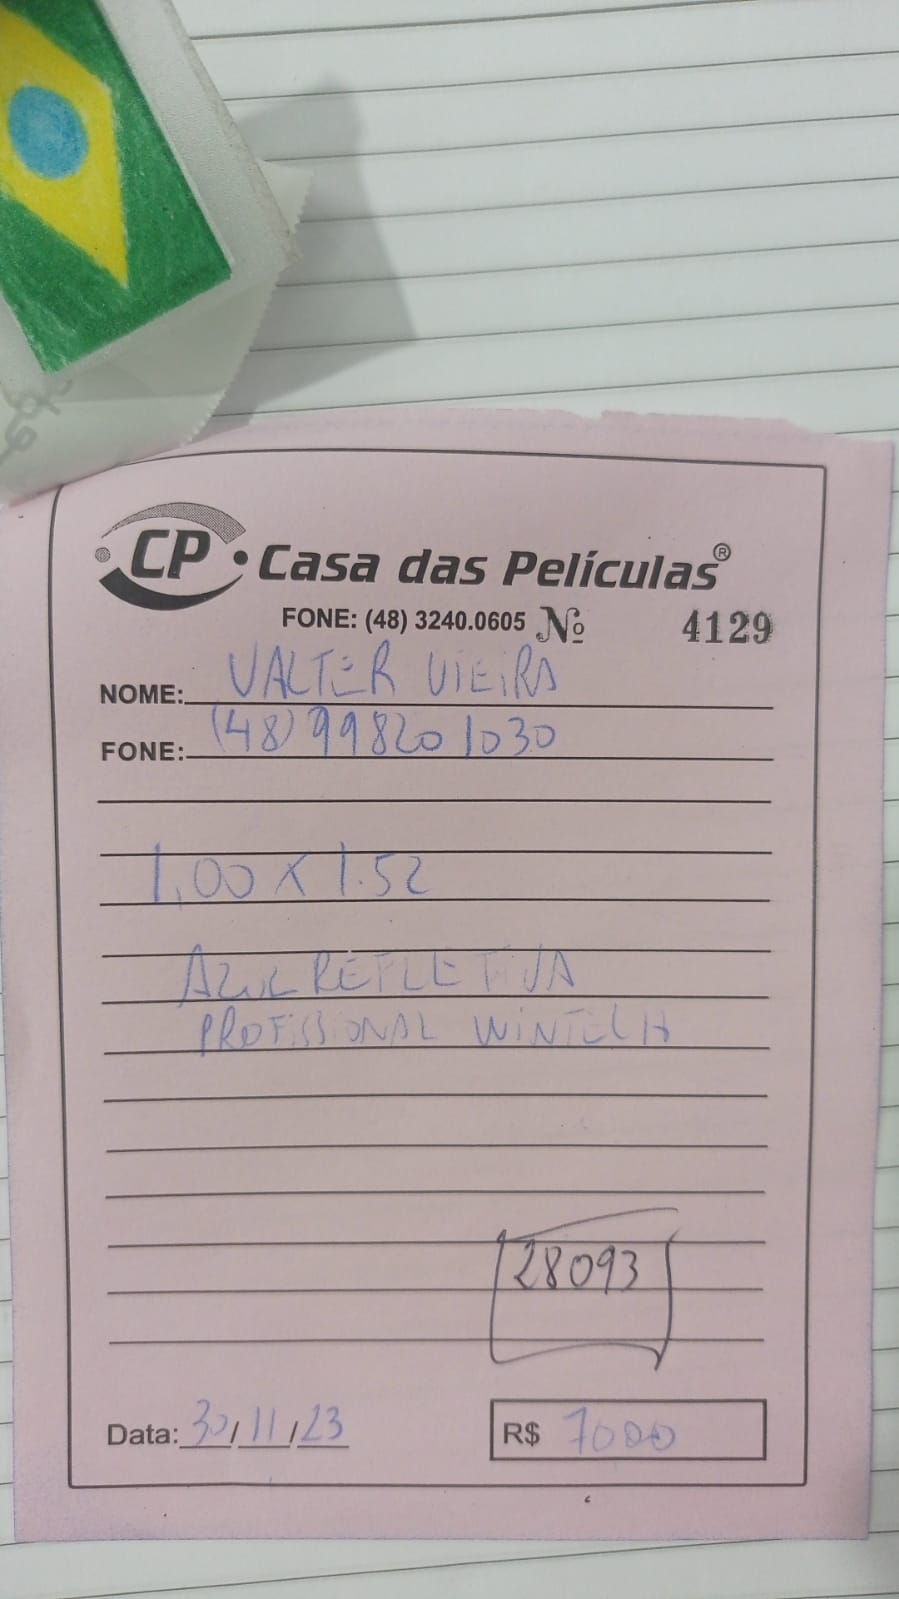 CP
Casa das Películas®
FONE: (48) 3240.0605 Nº 4129
NOME: VALTER VIEIRA
FONE: (48) 99820 1030
1,00 x 1.52
AZUL REFLETIVA
PROFISSIONAL WINTECH
28093
Data: 30/11/23 R$ 7000